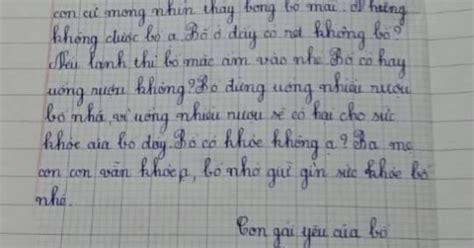 con cứ mong nhìn thấy bóng bố mãi. Nhưng
không được bố ạ. Bố ở đấy có rét không bố?
Nếu lạnh thì bố mặc ấm vào nhé. Bố có hay
uống rượu không? Bố đừng uống nhiều rượu
bố nhá, vì uống nhiều rượu sẽ có hại cho sức
khỏe của bố đấy. Bố có khỏe không ạ? Ba mẹ
con con vẫn khỏe ạ, bố nhớ giữ gìn sức khỏe bố
nhé.
Con gái yêu của bố